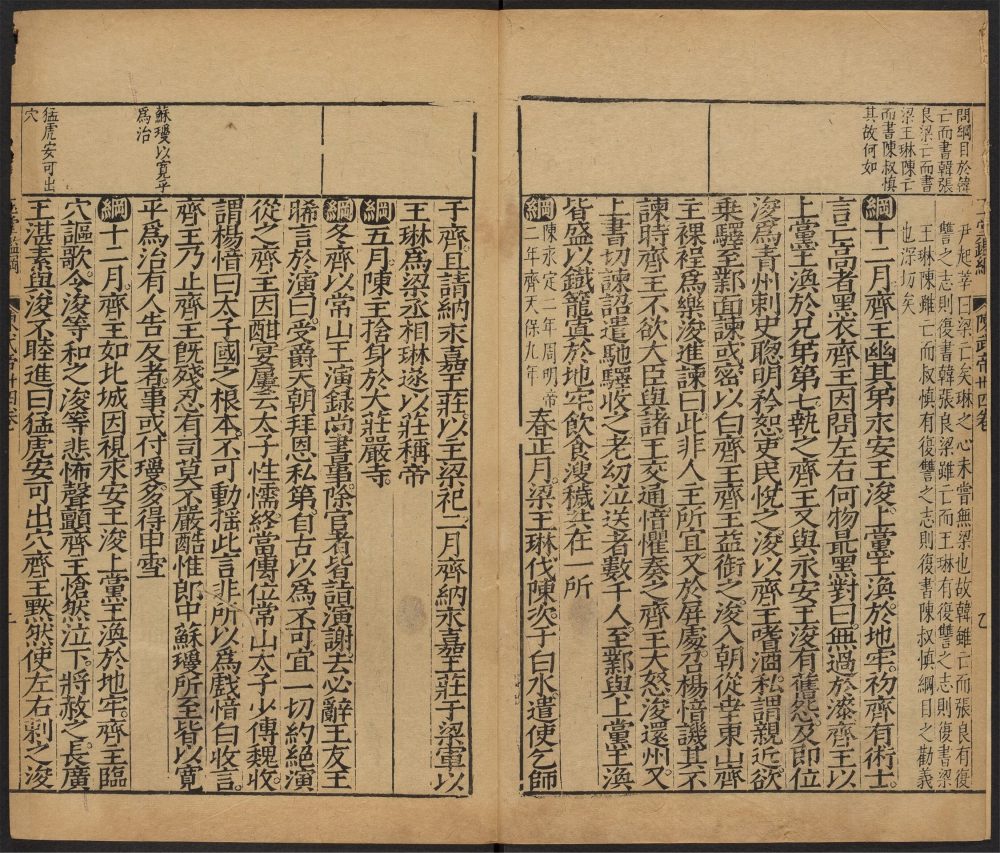 問綱目於韓
亡而書韓張
良梁亡而書
梁王琳陳亡
而書陳叔慎
其故何如
尹起莘曰梁亡矣琳之心未嘗無梁也故韓雖亡而張良有復
讐之志則復書韓張良梁雖亡而王琳有復讐之志則復書梁
王琳陳雖亡而叔慎有復讐之志則復書陳叔慎綱目之勸義
也深切矣
綱十二月齊王幽其弟永安王浚上黨王渙於地牢初齊有術士
言亡高者黑衣齊王因問左右何物最黑對曰無過於漆齊王以
上黨王渙於兄弟第七執之齊王又與永安王浚有舊怨及即位
浚為青州刺史聰明矜恕吏民悅之浚以齊王嗜酒私謂親近欲
乗驛至鄴面諫或密以白齊王齊王益銜之浚入朝從幸東山齊
主裸裎為樂浚進諫曰此非人主所宜又於屏處召楊愔譏其不
諫時齊王不欲大臣與諸王交通愔懼奏之齊王大怒浚還州又
上書切諫詔遣馳驛收之老幼泣送者數千人至鄴與上黨王渙
皆盛以鐵籠寘於地牢飲食溲穢共在一所
綱
陳永定二年周明帝
二年齊天保九年
春正月梁王琳伐陳次于白水遣使乞師
于齊且請納永嘉王莊以主梁祀二月齊納永嘉王莊于梁軍以
王琳為梁丞相琳遂以莊稱帝
綱五月陳王捨身於大莊嚴寺
綱冬齊以常山王演録尚書事除官者皆詣演謝去必辭王友王
晞言於演曰受爵天朝拜恩私第自古以為不可宜一切約絶演
從之齊王因酣宴屢云太子性懦終當傳位常山太子少傅魏收
謂楊愔曰太子國之根本不可動揺此言非所以為戲愔白收言
齊王乃止齊王旣殘忍有司莫不嚴酷惟郎中蘇瓊所至皆以寛
平為治有人告反者事或付瓊多得申雪
綱十二月齊王如北城因視永安王浚上黨王渙於地牢齊王臨
穴謳歌令浚等和之浚等悲怖聲顫齊王愴然泣下將赦之長廣
王湛素與浚不睦進曰猛虎安可出穴齊王默然使左右刺之浚
蘇瓊以寛平
為治
猛虎安可出
穴